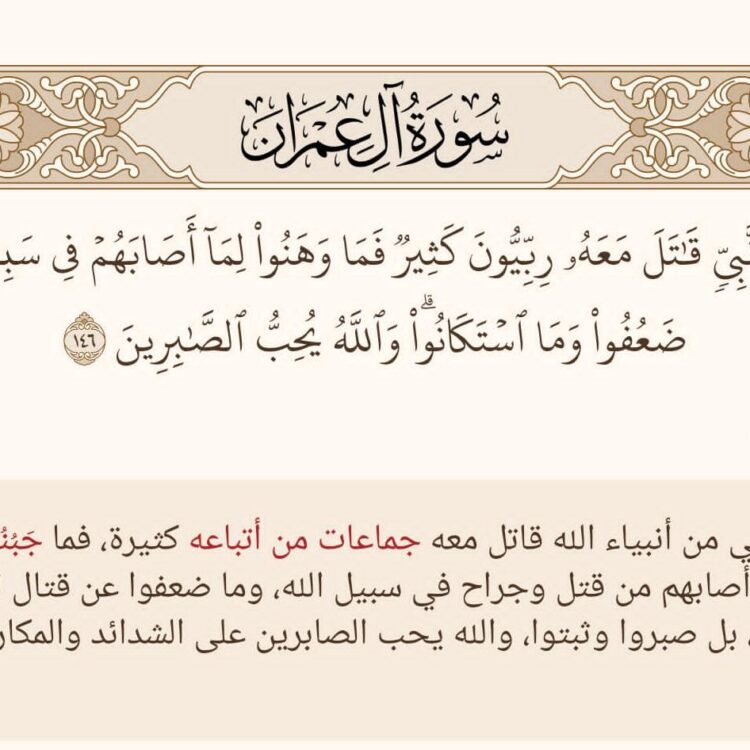 سُورَةُ آلِ عِمْرَانَ
قَٰتَلَ مَعَهُۥ رِبِّيُّونَ كَثِيرٞ فَمَا وَهَنُواْ لِمَآ أَصَابَهُمۡ فِي
ضَعُفُواْ وَمَا ٱسۡتَكَانُواْۗ وَٱللَّهُ يُحِبُّ ٱلصَّٰبِرِينَ ١٤٦
من أنبياء الله قاتل معه جماعات من أتباعه كثيرة، فما
أصابهم من قتل وجراح في سبيل الله، وما ضعفوا عن قتال
، بل صبروا وثبتوا، والله يحب الصابرين على الشدائد